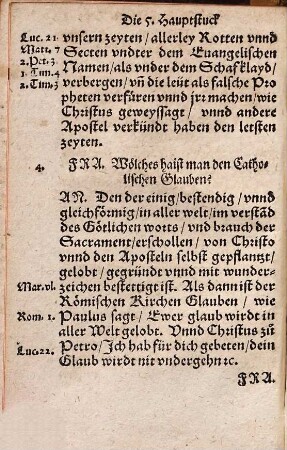 Die 5. Hauptstuck
Luc. 21. vnsern zeyten/ allerley Rotten vnnd
Matt. 7 Secten vndter dem Euangelischen
2. Pet. 3. Namen/ als vnder dem Schafklayd/
1. Tim. 4 verbergen/ vñ die leüt als falsche Pro
2. Tim. 3 pheten verfüren vnnd jrꝛ machen/ wie
Christus geweyssagt/ vnnd andere
Apostel verkündt haben den letsten
zeyten.
4. FRA. Wölches haist man den Catho-
lischen Glauben?
AN. Den der einig/ bestendig/ vnnd
gleichförmig/ in aller welt/ im verstãd
des Götlichen worts/ vnd brauch der
Sacrament/ erschollen/ von Christo
vnnd den Aposteln selbst gepflantzt/
gelobt/ gegründt vnnd mit wunder-
Mar. vl. zeichen bestettigt ist. Als dann ist der
Römischen Kirchen Glauben/ wie
Rom. 1. Paulus sagt/ Ewer glaub wirdt in
aller Welt gelobt. Vnnd Christus zů
Luc. 22. Petro/ Ich hab für dich gebeten/ dein
Glaub wirdt nit vndergehn ꝛc.
FRA.